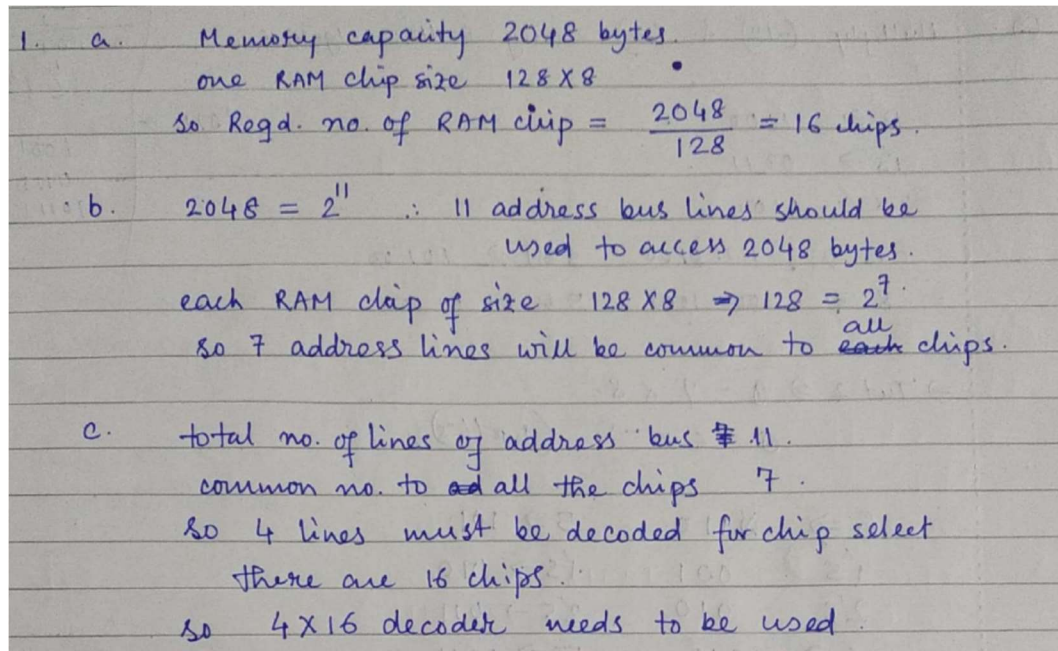 1. a. Memory capacity 2048 bytes.
one RAM chip size 128 X 8
so Reqd. no. of RAM chip = 2048/128 = 16 chips.
b. 2048 = 2¹¹ ∴ 11 address bus lines should be
used to access 2048 bytes.
each RAM chip of size 128 X 8 ⇒ 128 = 2⁷.
so 7 address lines will be common to all chips.
c. total no. of lines of address bus 11.
common no. to all the chips 7.
so 4 lines must be decoded for chip select
there are 16 chips.
so 4 X 16 decoder needs to be used.